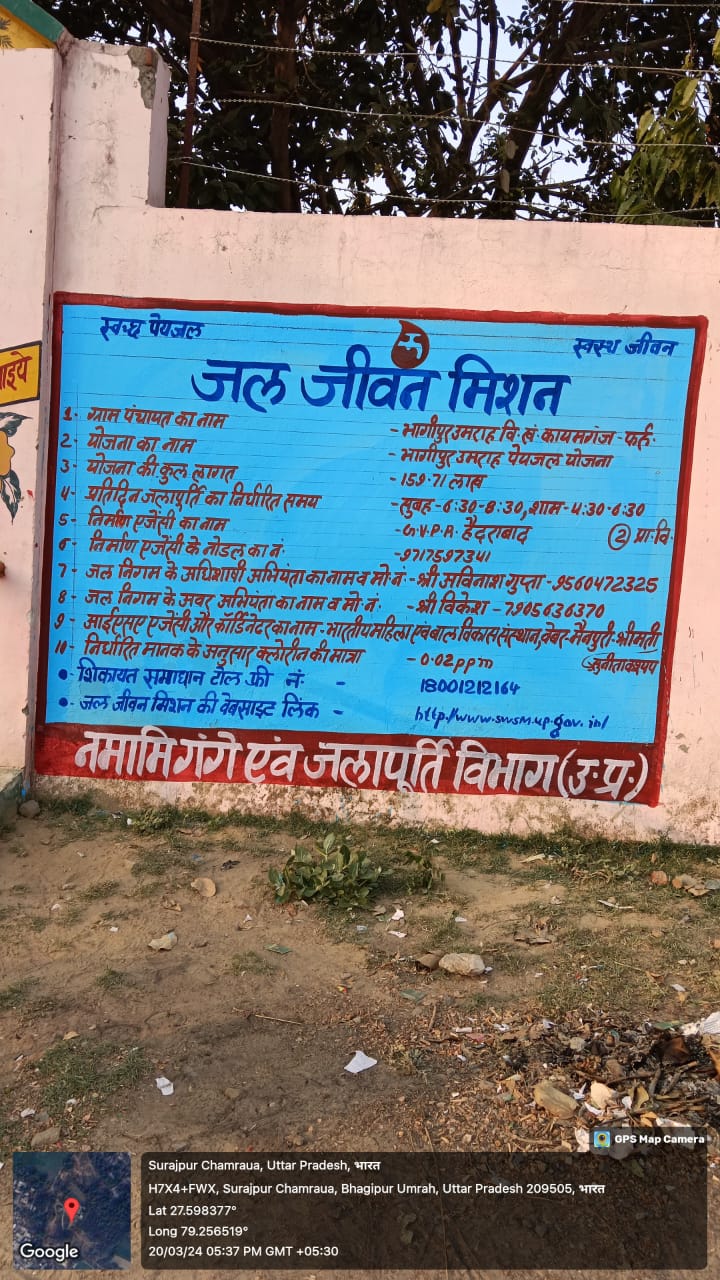 स्वच्छ पेयजल
स्वस्थ जीवन
जल जीवन मिशन
1- ग्राम पंचायत का नाम - भागीपुर उमराह वि.खं. कायमगंज - फर्रु.
2- योजना का नाम - भागीपुर उमराह पेयजल योजना
3- योजना की कुल लागत - 159.71 लाख
4- प्रतिदिन जलापूर्ति का निर्धारित समय - सुबह - 6:30-8:30, शाम - 4:30-6:30
5- निर्माण एजेंसी का नाम - G.V.P.R. हैदराबाद
② प्रा.वि.
6- निर्माण एजेंसी के नोडल का नं. - 9717597341
7- जल निगम के अधिशाषी अभियंता का नाम व मो. नं. - श्री अविनाश गुप्ता - 9560472325
8- जल निगम के अवर अभियंता का नाम व मो. नं. - श्री विकेश - 7905636370
9- आईएसए एजेंसी और कॉर्डिनेटर का नाम - भारतीय महिला एवं बाल विकास संस्थान, बेवर - मैनपुरी - श्रीमती
सुनीता कश्यप
10- निर्धारित मानक के अनुसार क्लोरीन की मात्रा - 0.02ppm
• शिकायत समाधान टोल फ्री नं. - 18001212164
• जल जीवन मिशन की वेबसाइट लिंक - http://www.swsm.up.gov.in/
नमामि गंगे एवं जलापूर्ति विभाग (उ.प्र.)
ाइये
GPS Map Camera
Surajpur Chamraua, Uttar Pradesh, भारत
H7X4+FWX, Surajpur Chamraua, Bhagipur Umrah, Uttar Pradesh 209505, भारत
Lat 27.598377°
Long 79.256519°
20/03/24 05:37 PM GMT +05:30
Google